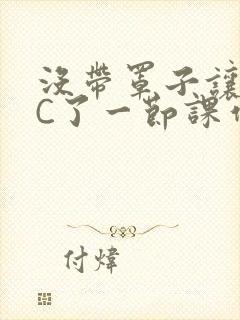 没帶罩子讓
C了一節課
付煒